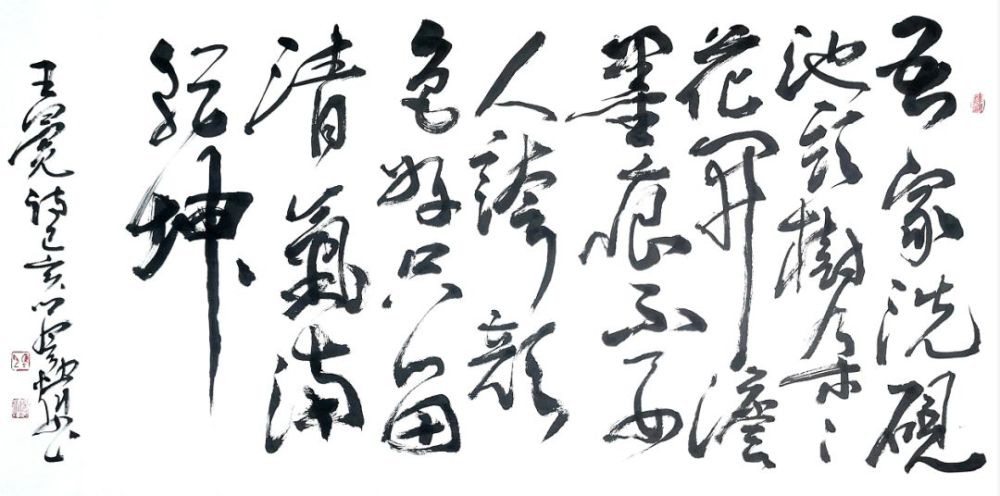 吾家洗硯
池頭樹朵〻
花開澹
墨痕不要
人誇顏
色好只留
清氣滿
乾坤
王冕詩己亥